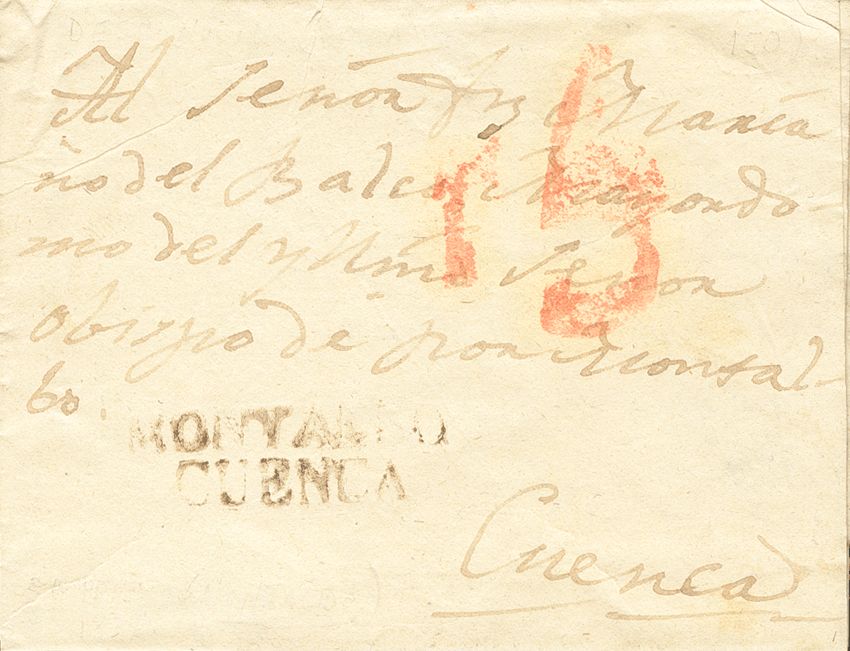 Al Señor Dn Maria
no del Balco Mayordo-
mo del Yllmo Señor
obispo de por Montal-
bo.
15
MONTALBO
CUENCA
Cuenca